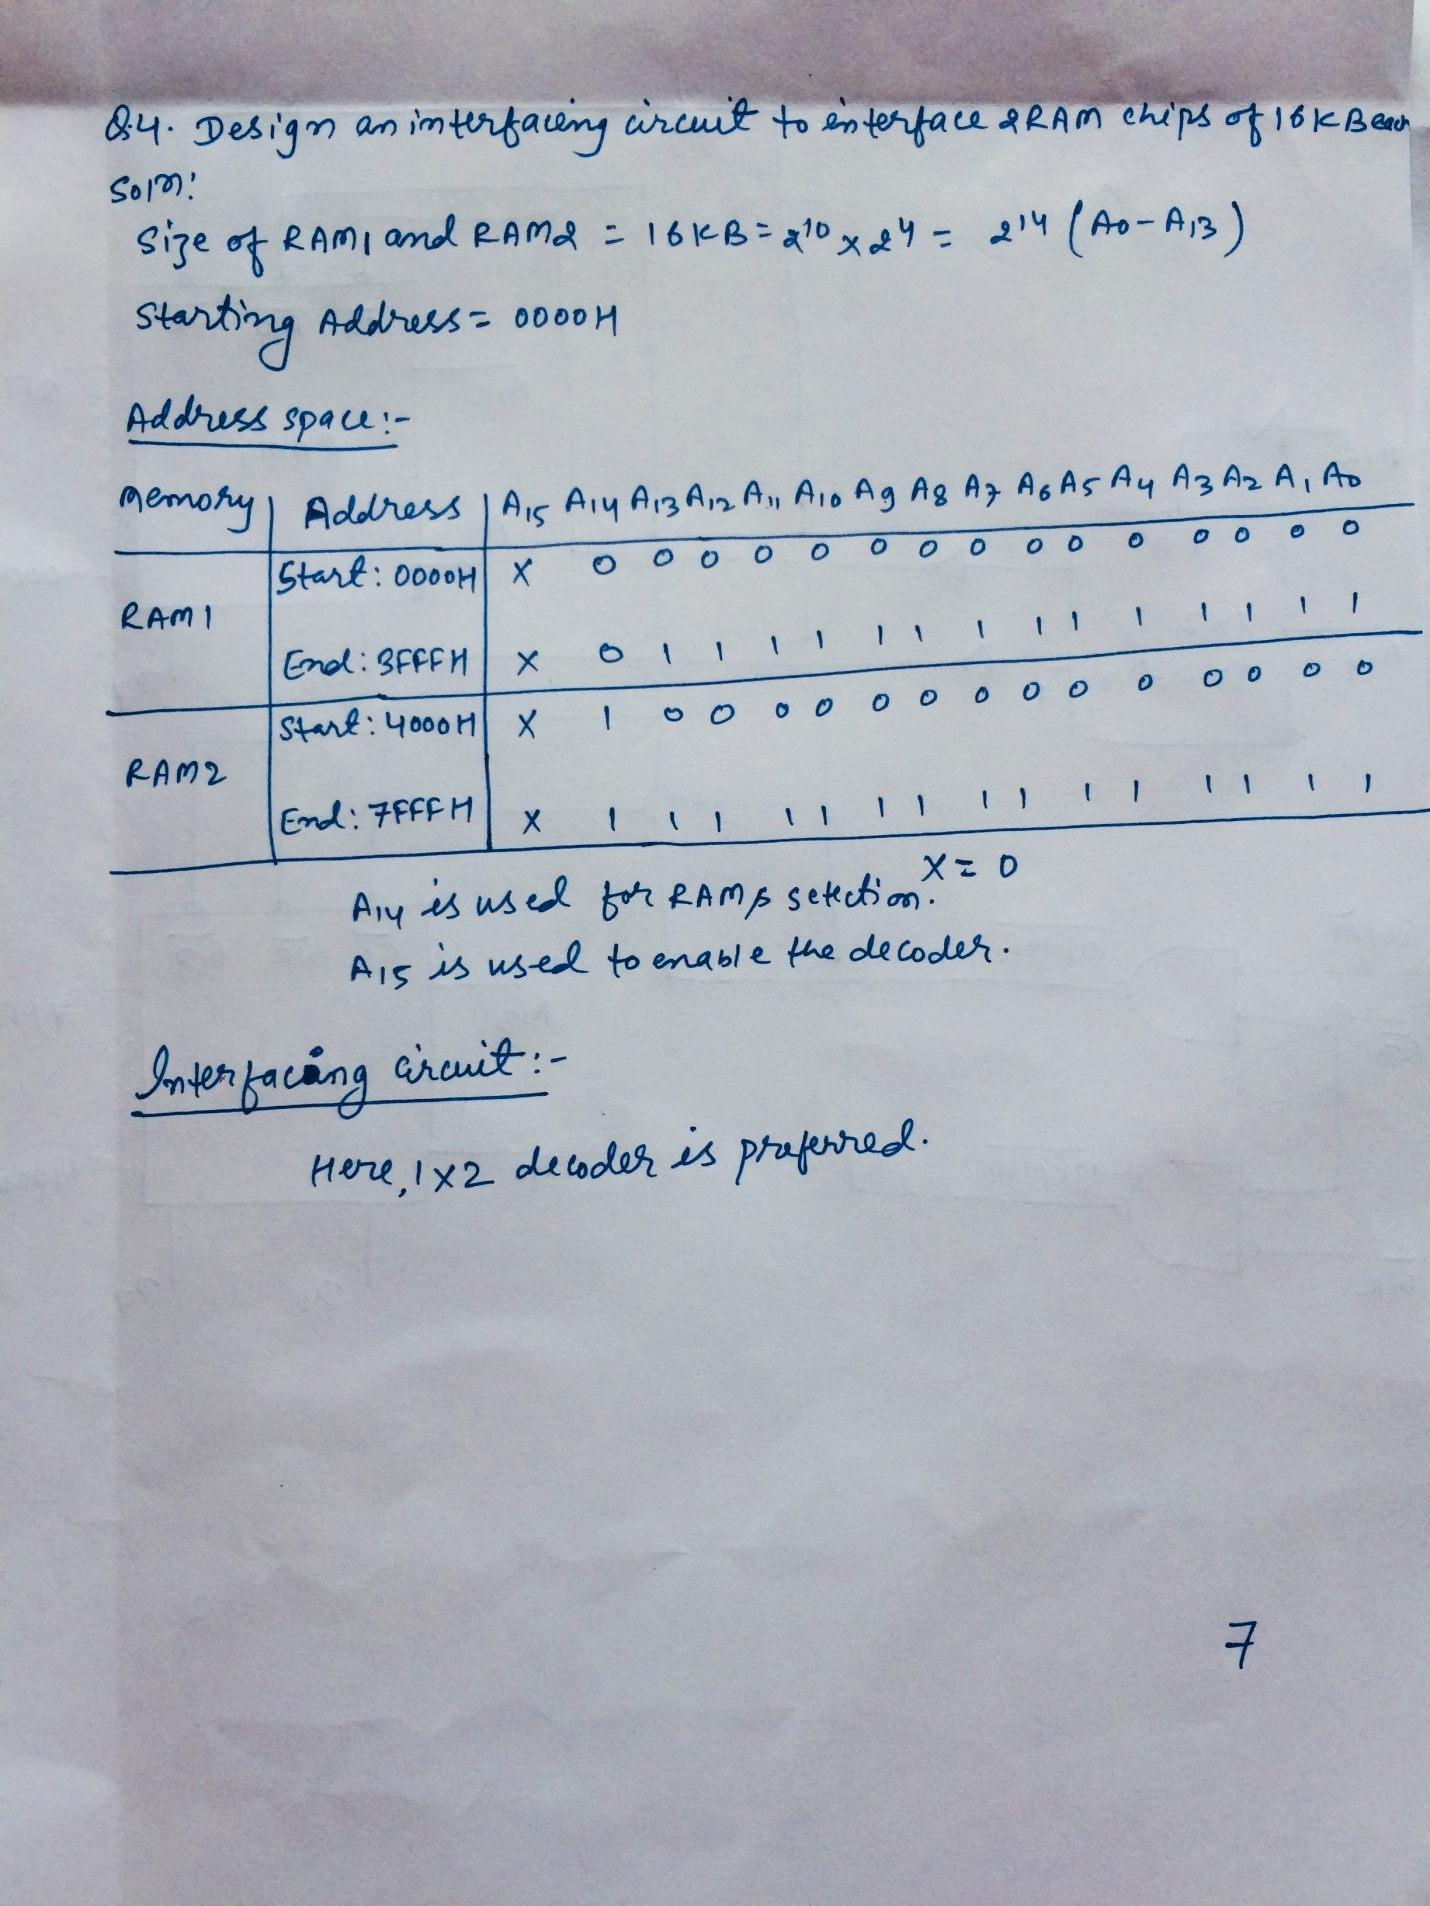 Q.4. Design an interfacing circuit to interface 2 RAM chips of 16KB each
Soln:
Size of RAM1 and RAM2 = 16KB = 2^10 x 2^4 = 2^14 (A0-A13)
Starting Address = 0000H
Address space:-
Memory | Address | A15 A14 A13 A12 A11 A10 A9 A8 A7 A6 A5 A4 A3 A2 A1 A0
Start: 0000H X 0 0 0 0 0 0 0 0 0 0 0 0 0 0 0
RAM1
End: 3FFFH X 0 1 1 1 1 1 1 1 1 1 1 1 1 1 1
Start: 4000H X 1 0 0 0 0 0 0 0 0 0 0 0 0 0 0
RAM2
End: 7FFFH X 1 1 1 1 1 1 1 1 1 1 1 1 1 1 1
X = 0
A14 is used for RAMs selection.
A15 is used to enable the decoder.
Interfacing circuit:-
Here, 1x2 decoder is preferred.
7